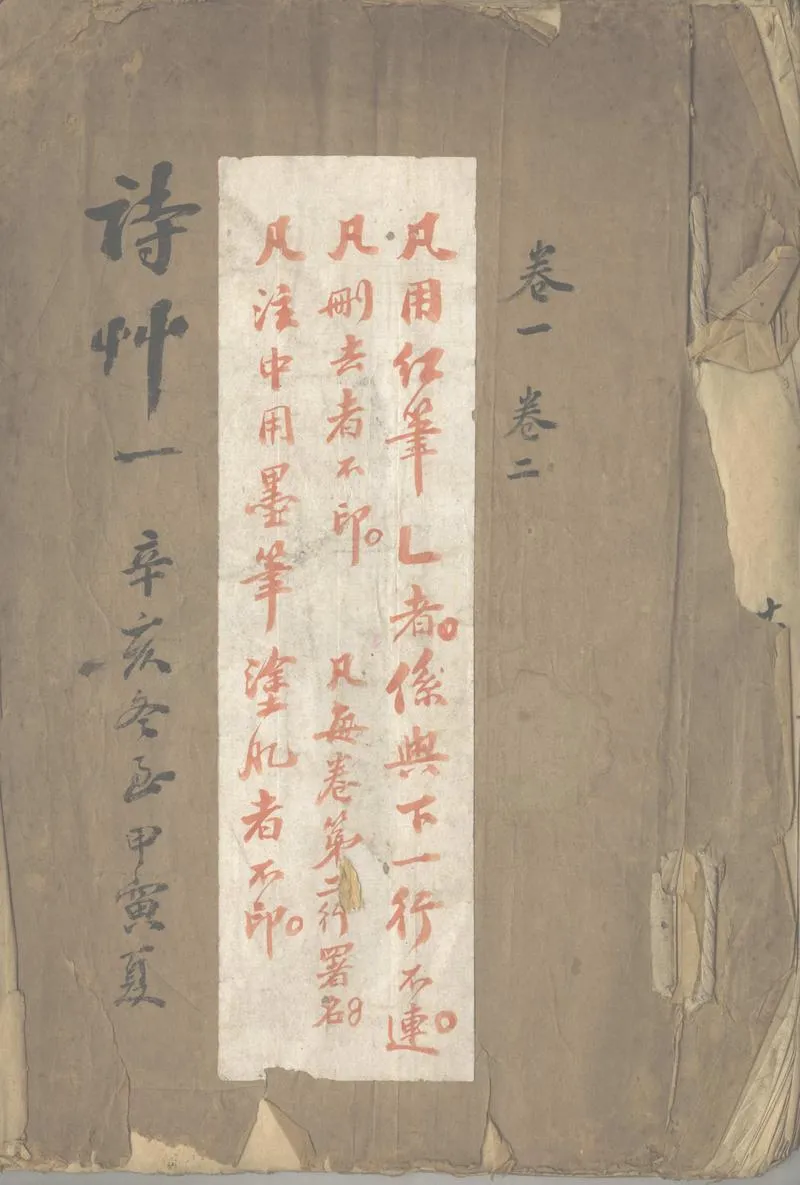 卷一 卷二
凡用红筆乚者。係與下一行不連。
凡刪去者不印。 凡每卷第二行署名
凡注中用墨筆塗肥者不印。
詩艸一 辛亥冬至甲寅夏